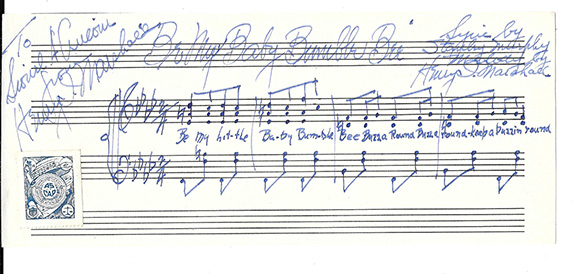 To
Lionel A
from
Henry I. Marshall
"Be My Baby Bumble Bee"
Lyric by
Stanley Murphy
Melody by
Henry I. Marshall
Be my lit-tle Ba-by Bumble Bee Buzza Round Buzza round-keep a buzzin round